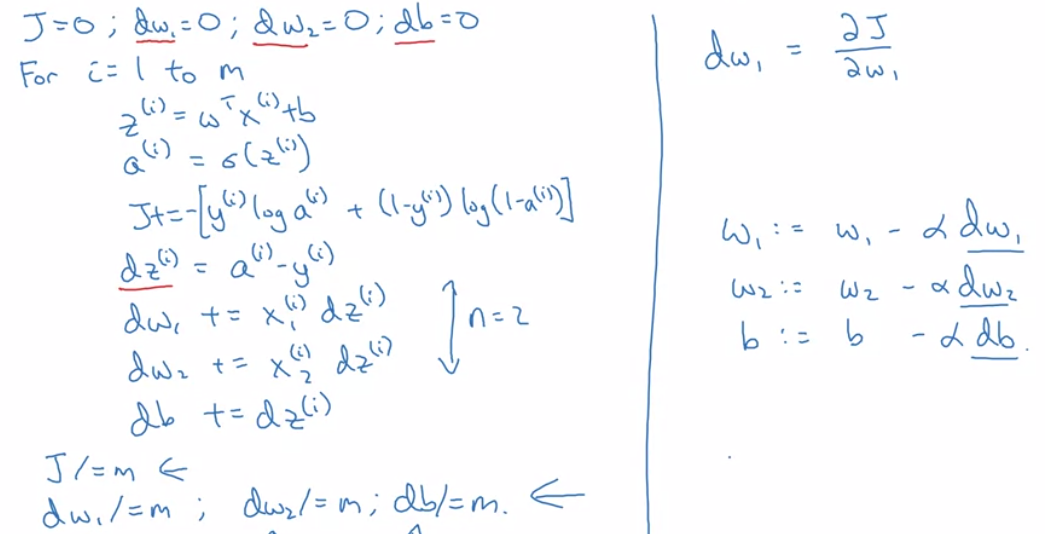 J=0 ; dw₁=0 ; dw₂=0 ; db=0
For i=1 to m
z⁽ⁱ⁾ = ωᵀx⁽ⁱ⁾+b
a⁽ⁱ⁾ = σ(z⁽ⁱ⁾)
J+=-[y⁽ⁱ⁾ log a⁽ⁱ⁾ + (1-y⁽ⁱ⁾) log(1-a⁽ⁱ⁾)]
dz⁽ⁱ⁾ = a⁽ⁱ⁾-y⁽ⁱ⁾
dw₁ += x₁⁽ⁱ⁾ dz⁽ⁱ⁾
dw₂ += x₂⁽ⁱ⁾ dz⁽ⁱ⁾
n=2
db += dz⁽ⁱ⁾
J/=m ←
dw₁/=m ; dw₂/=m ; db/=m. ←
dw₁ = ∂J/∂w₁
w₁ := w₁ - α dw₁
w₂ := w₂ - α dw₂
b := b - α db.